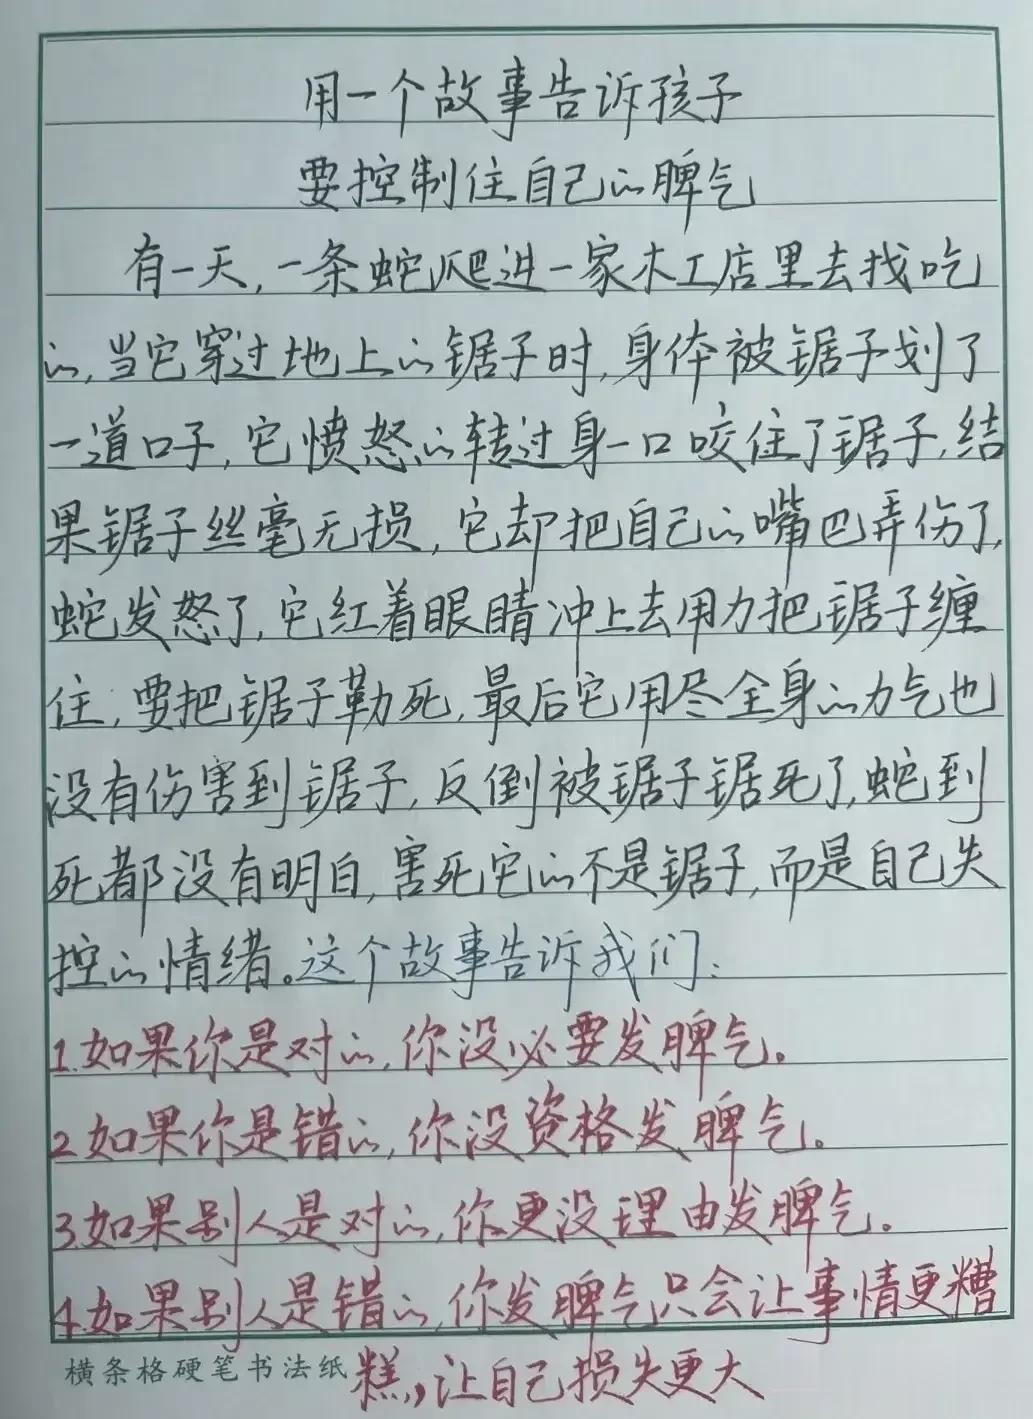 用一个故事告诉孩子
要控制住自己的脾气
有一天,一条蛇爬进一家木工店里去找吃
的,当它穿过地上的锯子时,身体被锯子划了
一道口子,它愤怒的转过身一口咬住了锯子,结
果锯子丝毫无损,它却把自己的嘴巴弄伤了,
蛇发怒了,它红着眼睛冲上去用力把锯子缠
住,要把锯子勒死,最后它用尽全身的力气也
没有伤害到锯子,反倒被锯子锯死了,蛇到
死都没有明白,害死它的不是锯子,而是自己失
控的情绪。这个故事告诉我们:
1.如果你是对的,你没必要发脾气。
2.如果你是错的,你没资格发脾气。
3.如果别人是对的,你更没理由发脾气。
4.如果别人是错的,你发脾气只会让事情更糟
横条格硬笔书法纸 糕,,让自己损失更大